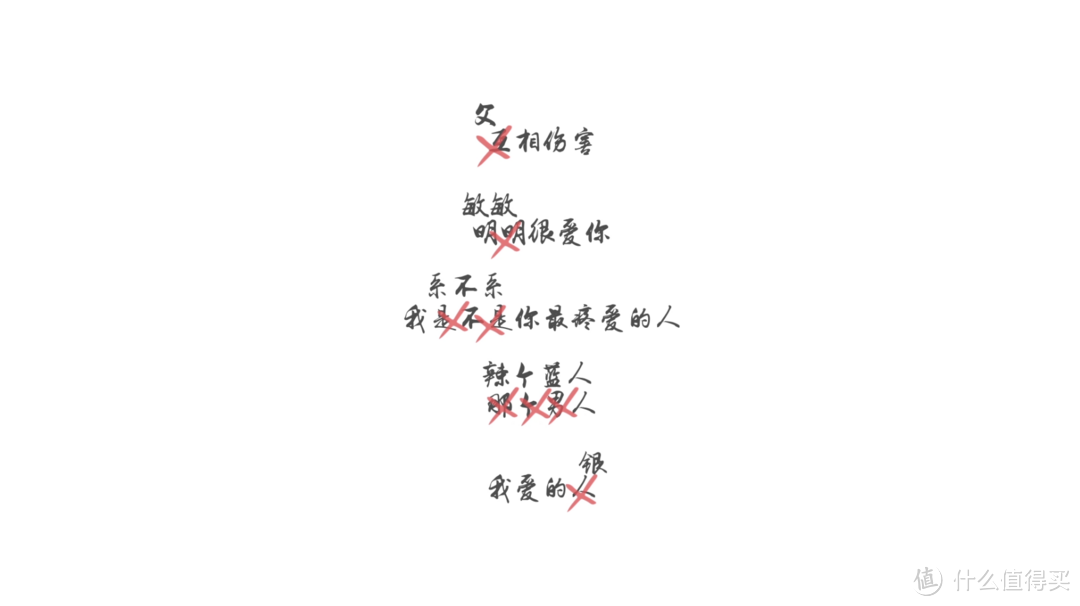 父
互相伤害
敏敏
明明很爱你
系不系
我是不是你最疼爱的人
辣个蓝人
那个男人
银
我爱的人
值 什么值得买